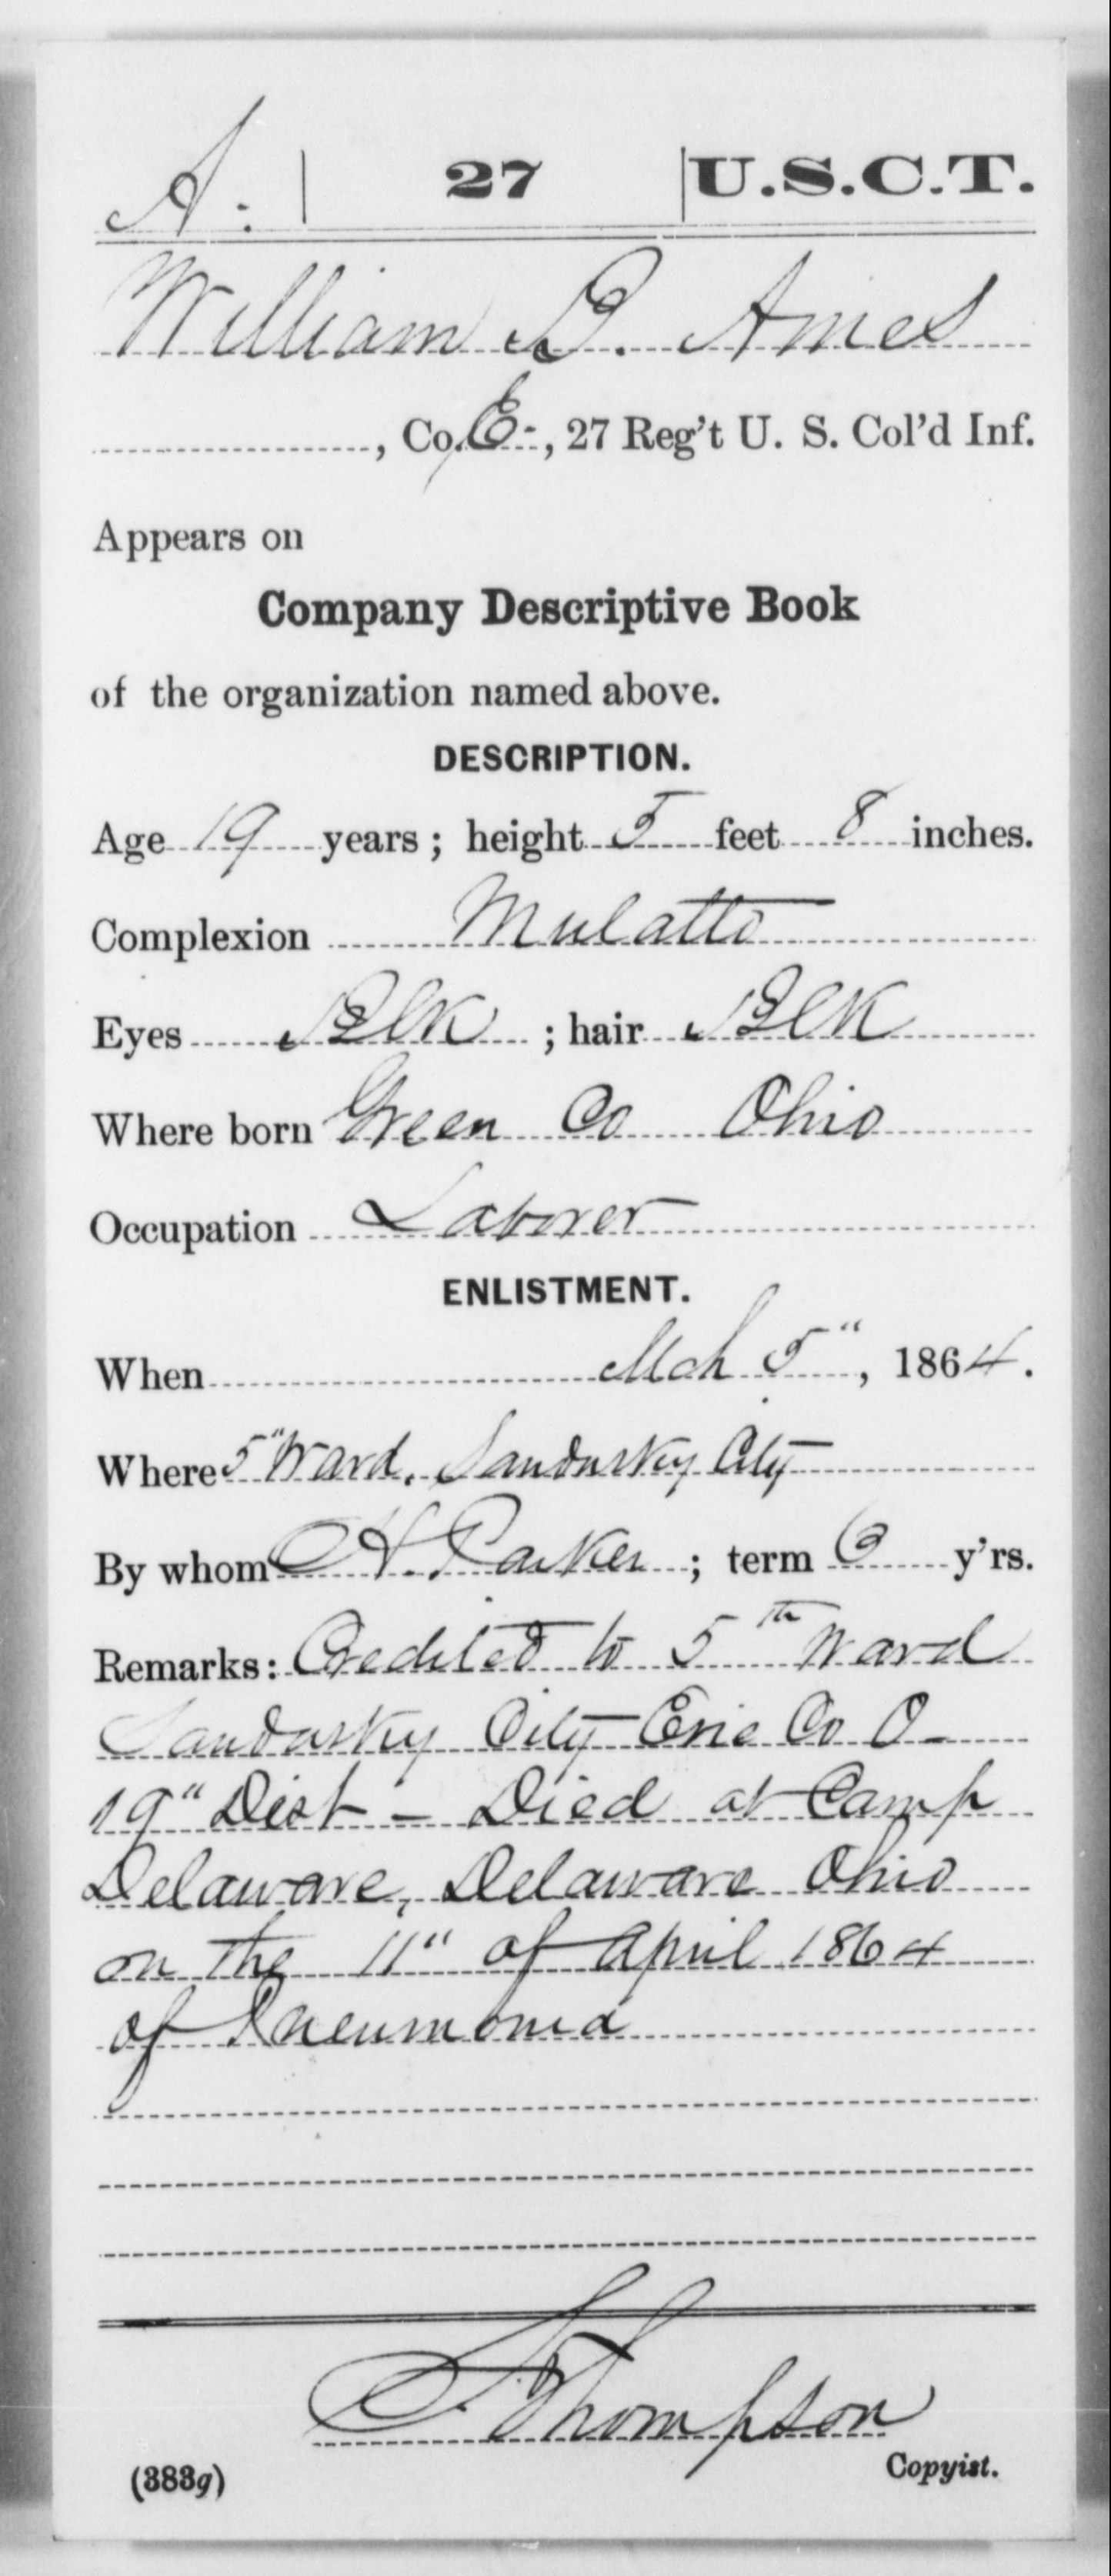 A. | 27 | U.S.C.T.
William D. Ames
, Co. E, 27 Reg't U. S. Col'd Inf.
Appears on
Company Descriptive Book
of the organization named above.
DESCRIPTION.
Age 19 years; height 5 feet 8 inches.
Complexion Mulatto
Eyes Blk ; hair Blk
Where born Green Co Ohio
Occupation Laborer
ENLISTMENT.
When Mch 5", 1864.
Where 5" Ward, Sandusky City
By whom H. Parker ; term 3 y'rs.
Remarks: Credited to 5th Ward
Sandusky City Erie Co O-
19" Dist - Died at Camp
Delaware, Delaware Ohio
on the 11" of April 1864
of Pneumonia
Thompson
(383g) Copyist.